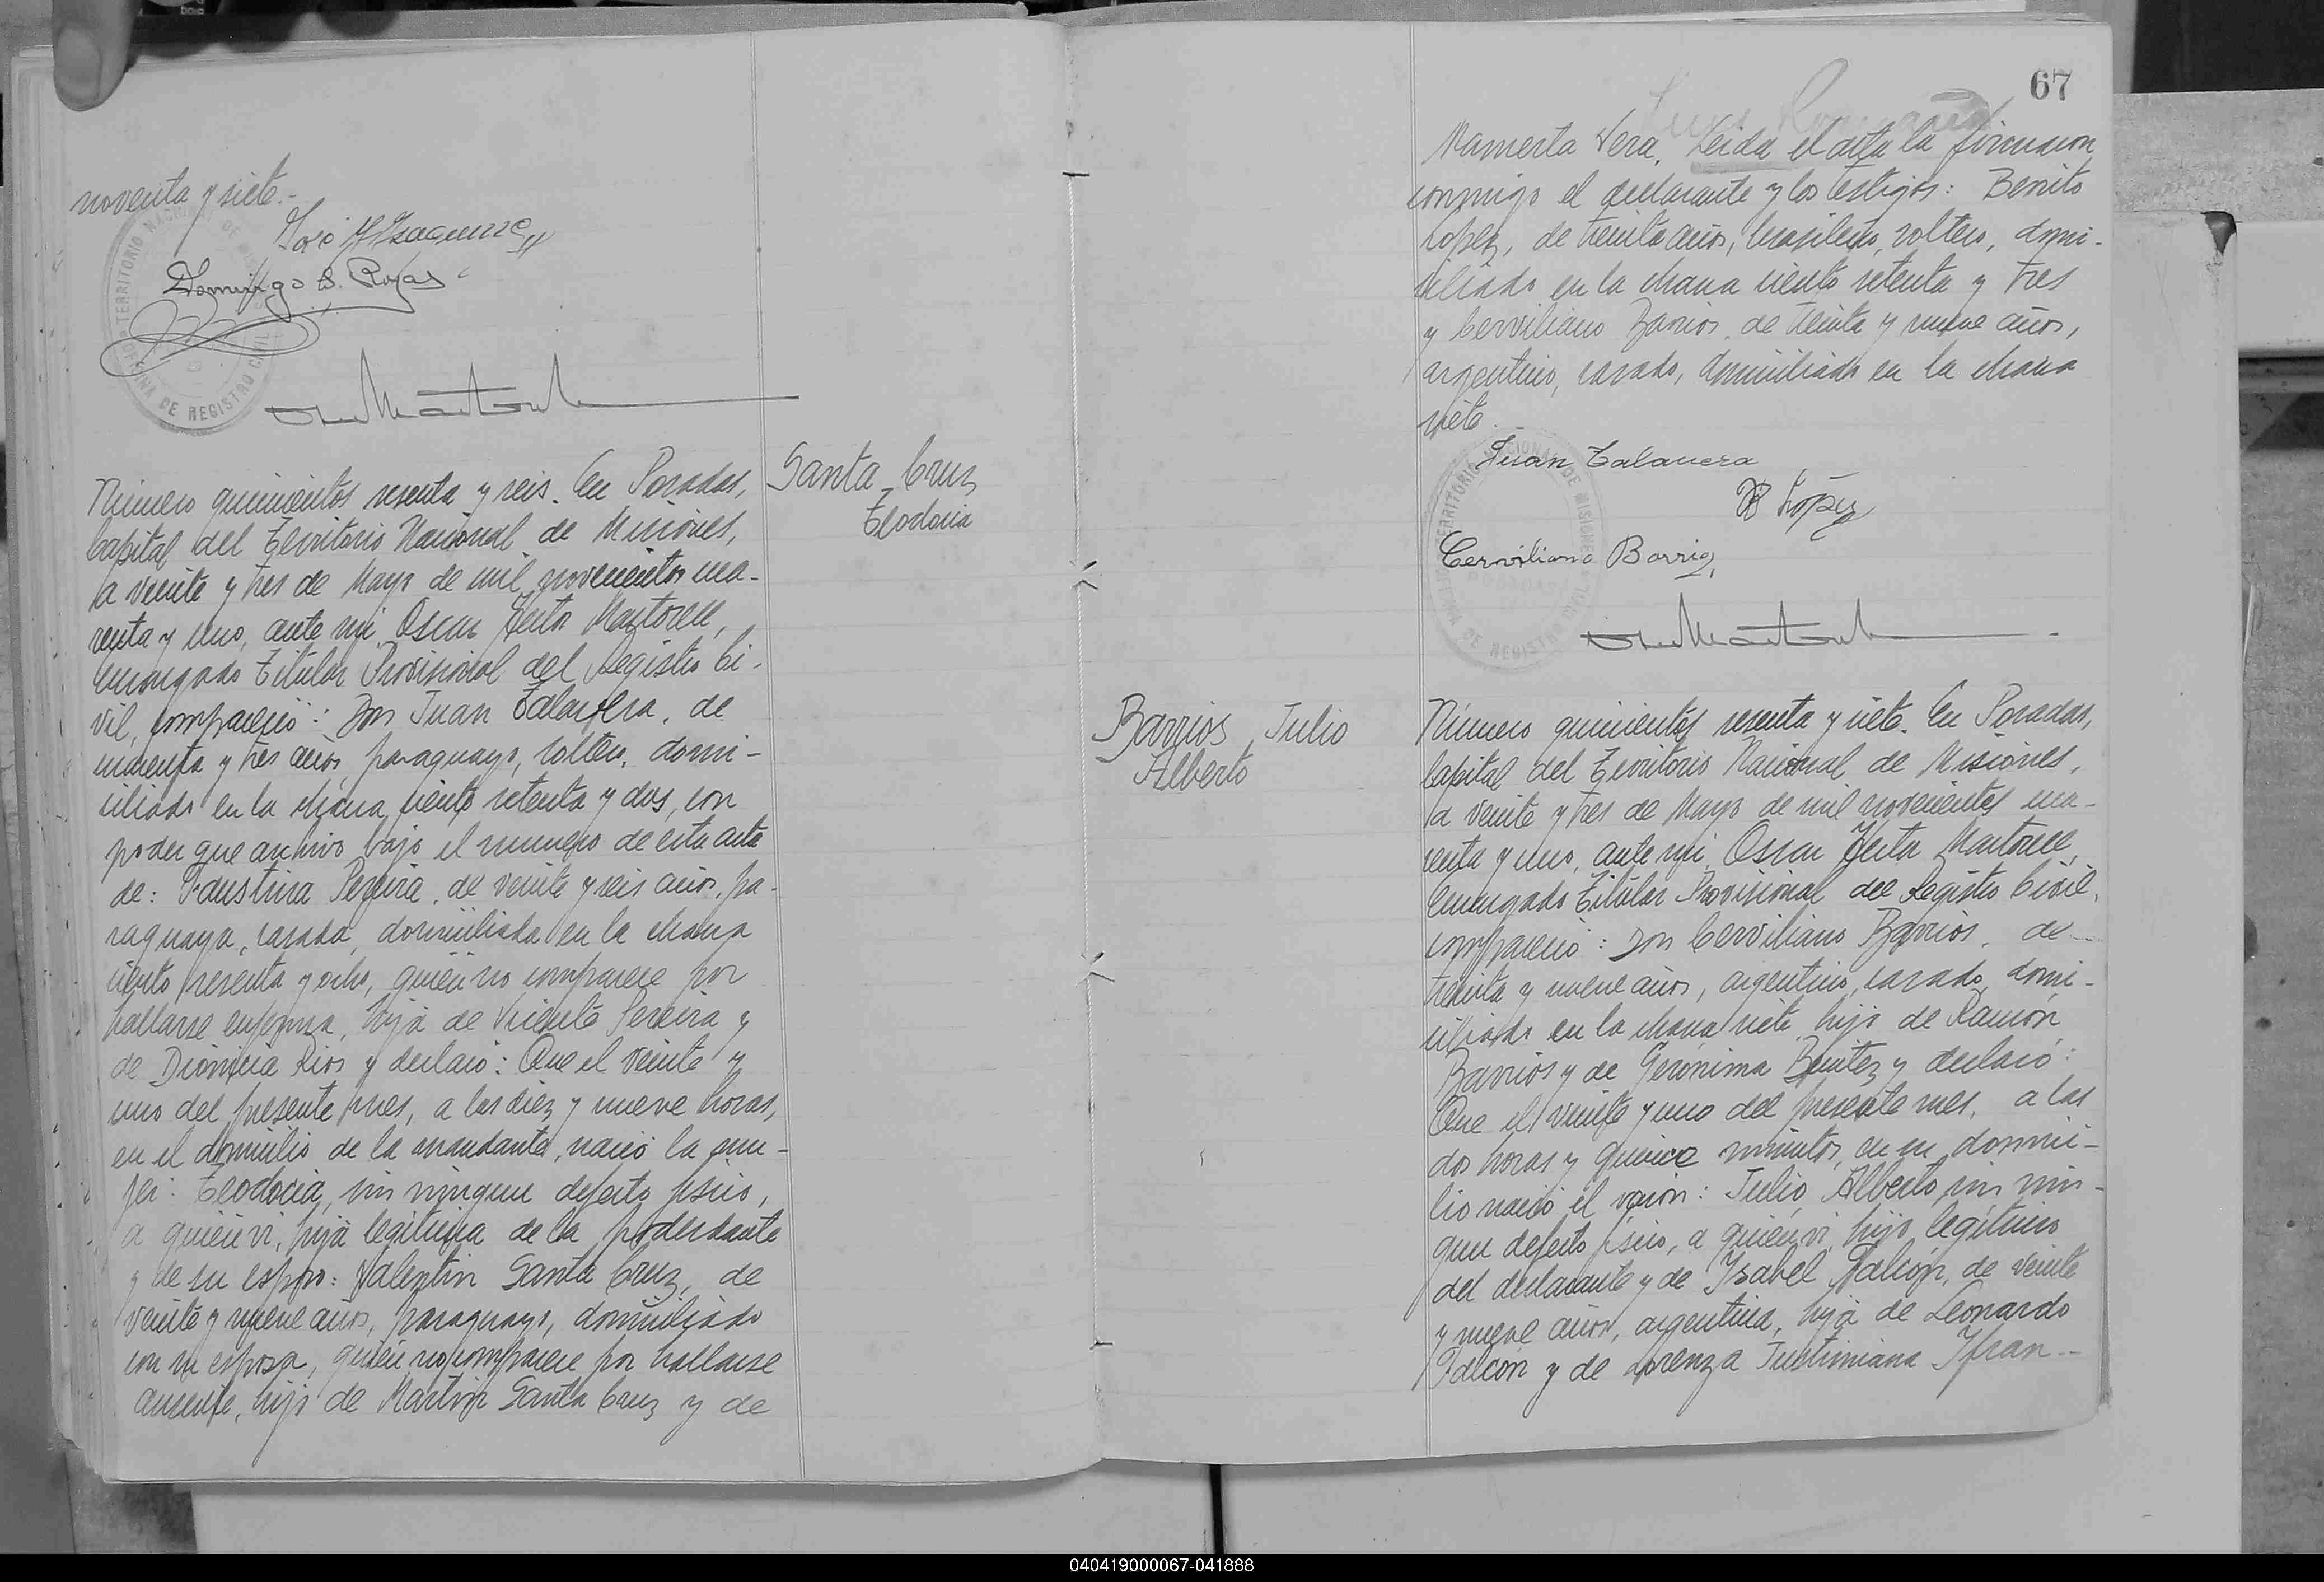 noventa y siete.-
Domingo B. Rojas
TERRITORIO NACIONAL DE MISIONES
OFICINA DE REGISTRO CIVIL
Santa Cruz
Teodocia
Número quinientos sesenta y seis. En Posadas,
Capital del Territorio Nacional de Misiones,
a veinte y tres de Mayo de mil novecientos cua-
renta y uno, ante mi, Oscar Héctor Martorell,
Encargado Titular Provisional del Registro Ci-
vil, compareció: Don Juan Talavera, de
cincuenta y tres años, paraguayo, soltero, domi-
ciliado en la chacra ciento setenta y dos, con
poder que archivo bajo el número de esta acta
de: Faustina Pereira, de veinte y seis años, pa-
raguaya, casada, domiciliada en la chacra
ciento sesenta y ocho, quién no comparece por
hallarse enferma, hija de Vicente Pereira y
de Dionicia Rios y declaró: Que el veinte y
uno del presente mes, a las diez y nueve horas,
en el domicilio de la mandante, nació la mu-
jer: Teodocia, sin ningun defecto físico,
a quién vi, hija legítima de la poderdante
y de su esposo: Valentin Santa Cruz, de
veinte y nueve años, paraguayo, domiciliado
con su esposa, quién no comparece por hallarse
ausente, hijo de Martin Santa Cruz y de
67
Mamerta Vera. Leida el acta la firmaron
conmigo el declarante y los testigos: Benito
Lopez, de treinta años, brasileño, soltero, domi-
ciliado en la chacra ciento setenta y tres
y Cerviliano Barrios, de treinta y nueve años,
argentino, casado, domiciliado en la chacra
siete.
Juan Talavera
B López
Cerviliano Barrios
TERRITORIO NACIONAL DE MISIONES
OFICINA DE REGISTRO CIVIL
Barrios Julio
Alberto
Número quinientos sesenta y siete. En Posadas,
Capital del Territorio Nacional de Misiones,
a veinte y tres de Mayo de mil novecientos cua-
renta y uno, ante mi, Oscar Héctor Martorell,
Encargado Titular Provisional del Registro Civil,
compareció: Don Cerviliano Barrios, de
treinta y nueve años, argentino, casado, domi-
ciliado en la chacra siete, hijo de Ramón
Barrios y de Gerónima Benitez y declaró:
Que el veinte y uno del presente mes, a las
dos horas y quince minutos, en su domici-
lio nació el varón: Julio Alberto, sin nin-
gun defecto físico, a quién vi, hijo legítimo
del declarante y de Ysabel Falcón, de veinte
y nueve años, argentina, hija de Leonardo
Falcón y de Lorenza Justiniana Yfran.-
040419000067-041888